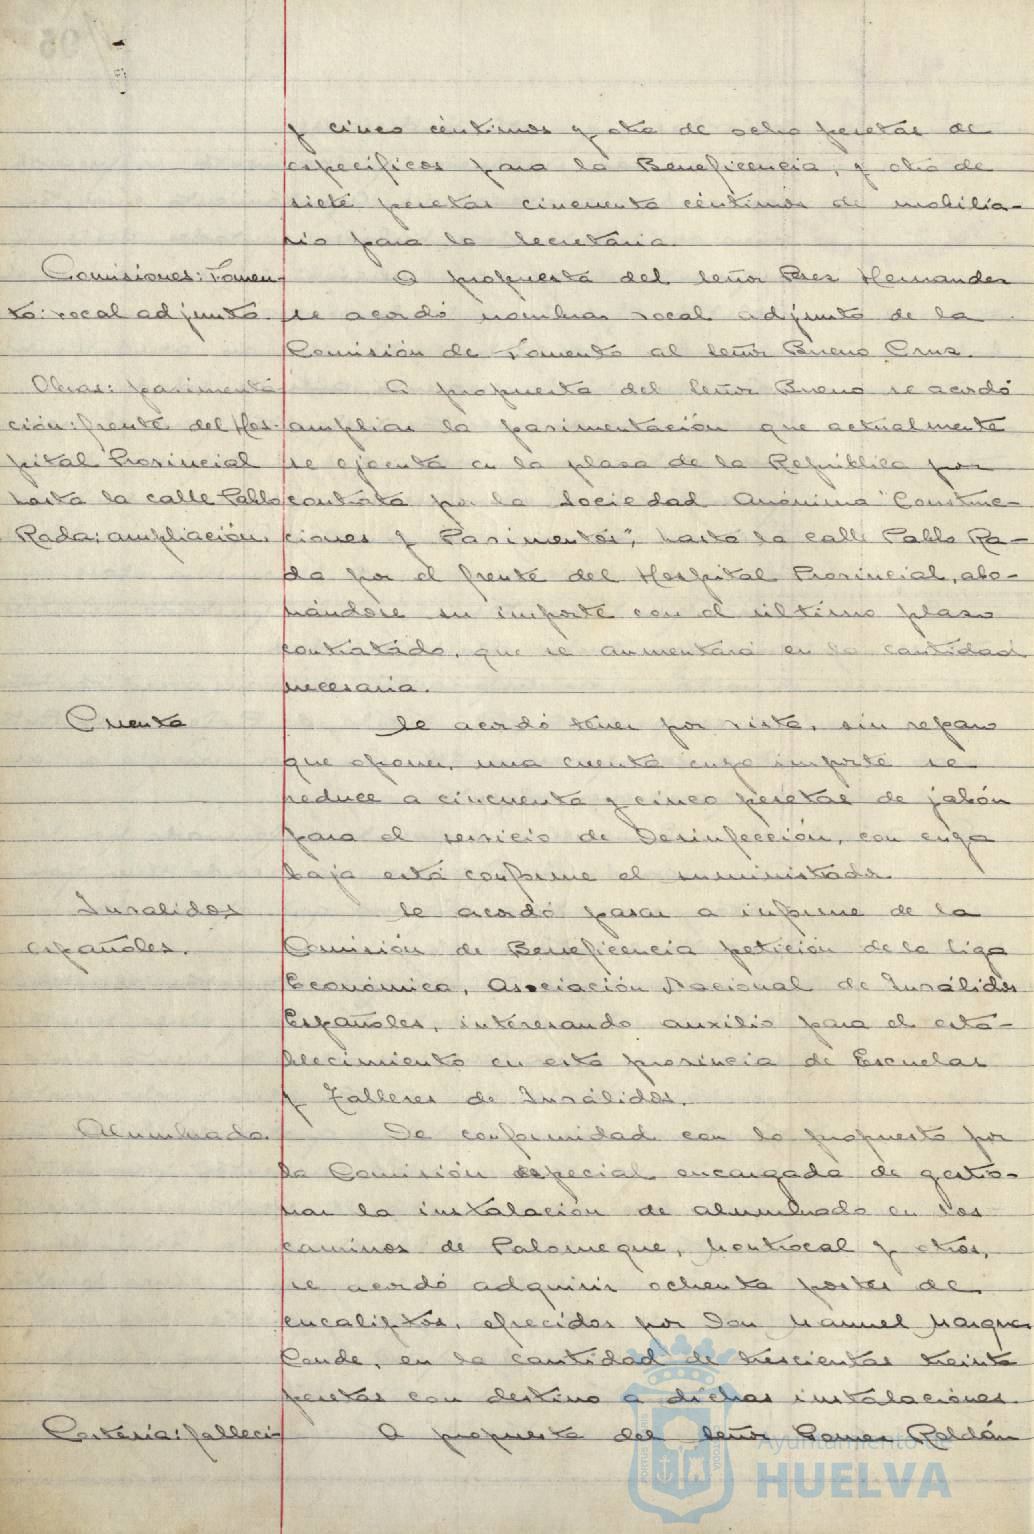 y cinco céntimos y otra de ocho pesetas de
específicos para la Beneficencia, y otra de
siete pesetas cincuenta céntimos de mobilia-
rio para la Secretaría.
Comisiones: Fomen-
to: vocal adjunto.
A propuesta del señor Perez Hernandez
se acordó nombrar vocal adjunto de la
Comisión de Fomento al señor Bueno Cruz.
Obras: pavimenta
ción: frente del Hos-
pital Provincial
hasta la calle Pablo
Rada: ampliación.
A propuesta del señor Bueno se acordó
ampliar la pavimentación que actualmente
se ejecuta en la plaza de la República por
contrata por la Sociedad Anónima "Construc-
ciones y Pavimentos", hasta la calle Pablo Ra-
da por el frente del Hospital Provincial, abo-
nándose su importe con el último plazo
contratado, que se aumentará en la cantidad
necesaria.
Cuenta
Se acordó tener por vista, sin reparo
que oponer, una cuenta cuyo importe se
reduce a cincuenta y cinco pesetas de jabón
para el servicio de Desinfección, con cuya
baja está conforme el suministrador.
Inválidos
españoles.
Se acordó pasar a informe de la
Comisión de Beneficencia petición de la Liga
Económica, Asociación Nacional de Inválidos
Españoles, interesando auxilio para el esta-
blecimiento en esta provincia de Escuelas
y Talleres de Inválidos.
Alumbrado.
De conformidad con lo propuesto por
la Comisión especial encargada de gestio-
nar la instalación de alumbrado en los
caminos de Palomeque, Montrocal y otros,
se acordó adquirir ochenta postes de
eucaliptos, ofrecidos por Don Manuel Marquez
Conde, en la cantidad de trescientas treinta
pesetas con destino a dichas instalaciones.
Cortesía: falleci-
A propuesta del señor Gomez Roldán
Ayuntamiento de
HUELVA